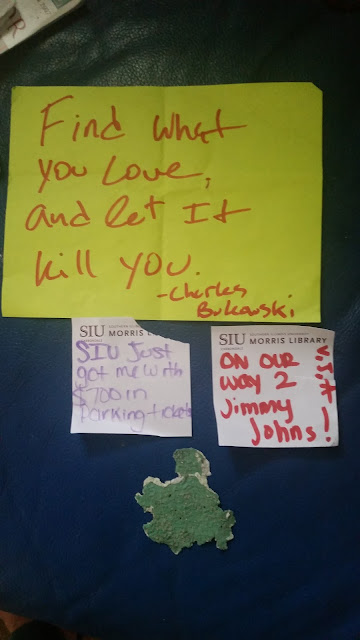 Find what
you Love,
and let It
kill you.
-Charles
Bukowski
SIU
MORRIS LI
SIU Just
got me with
$700 in
parking tickets
SIU
MORRIS LIBRARY
ON OUR
WAY 2
Jimmy
Johns!
VISIT